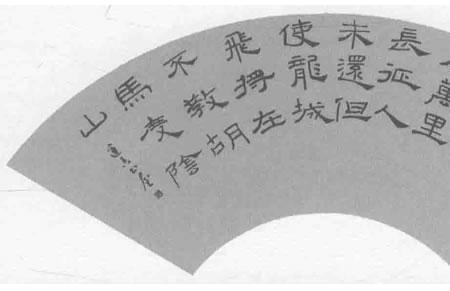 萬里
長征人
未還但
使龍城
飛將在
不教胡
馬度陰
山